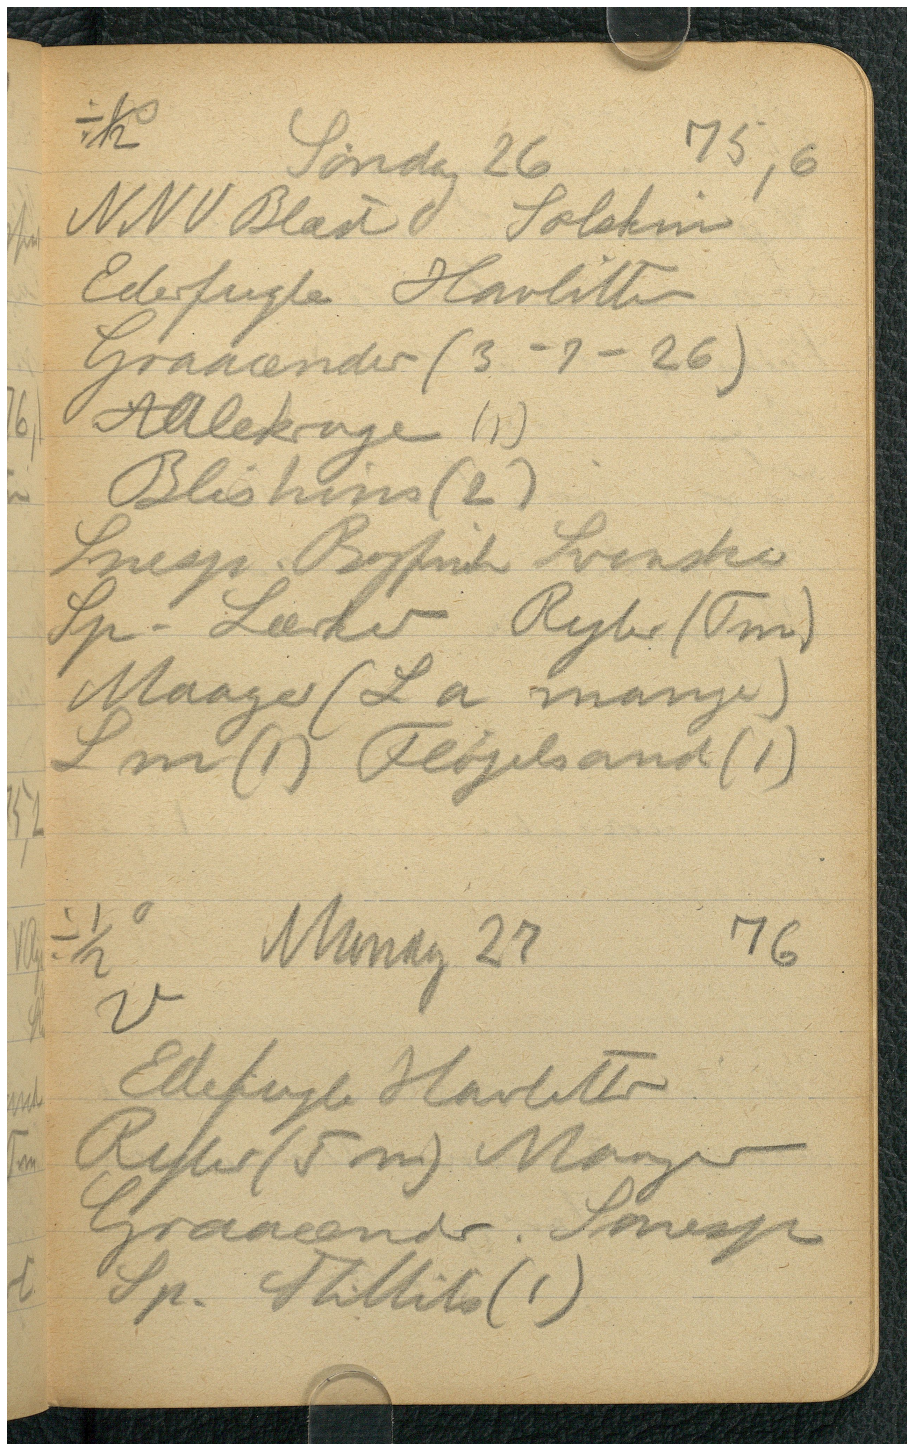 ÷½° Søndag 26 75,6
NNV Blæst Solskin
Ederfugle Havlitter
Graaænder (3 - 7 - 26)
Allekrage (1)
Blishøns (2)
Snesp. Bogfink Svenske
Sp. Lærker Ryler (Tm)
Maager (L a mange)
L m (1) Fløjelsand (1)
÷½° Mandag 27 76
V
Edefugle Havlitter
Ryler (Tm) Maager
Graaænder. Snesp
Sp. Stillits (1)